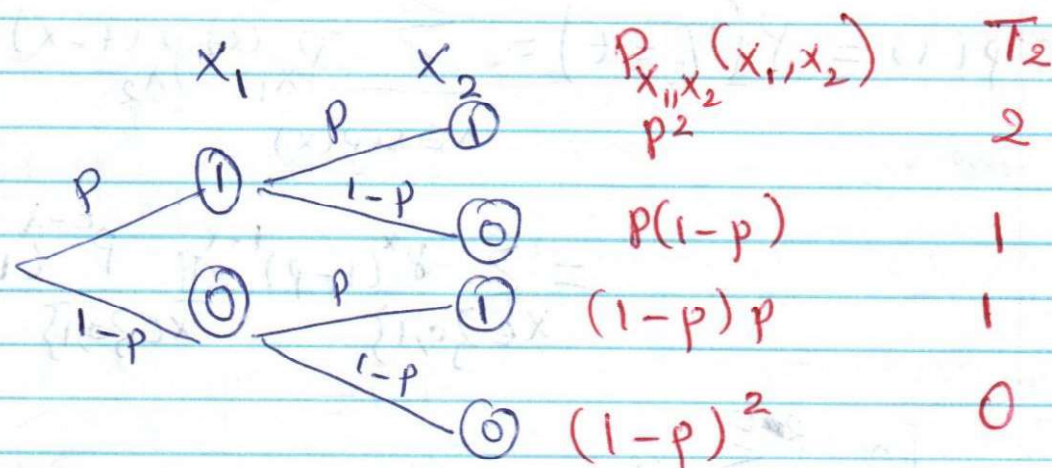 X₁ X₂ P_{X₁,X₂}(x₁,x₂) T₂
p 1 p² 2
p 1 1-p 0 p(1-p) 1
1-p 0 p 1 (1-p)p 1
1-p 0 (1-p)² 0